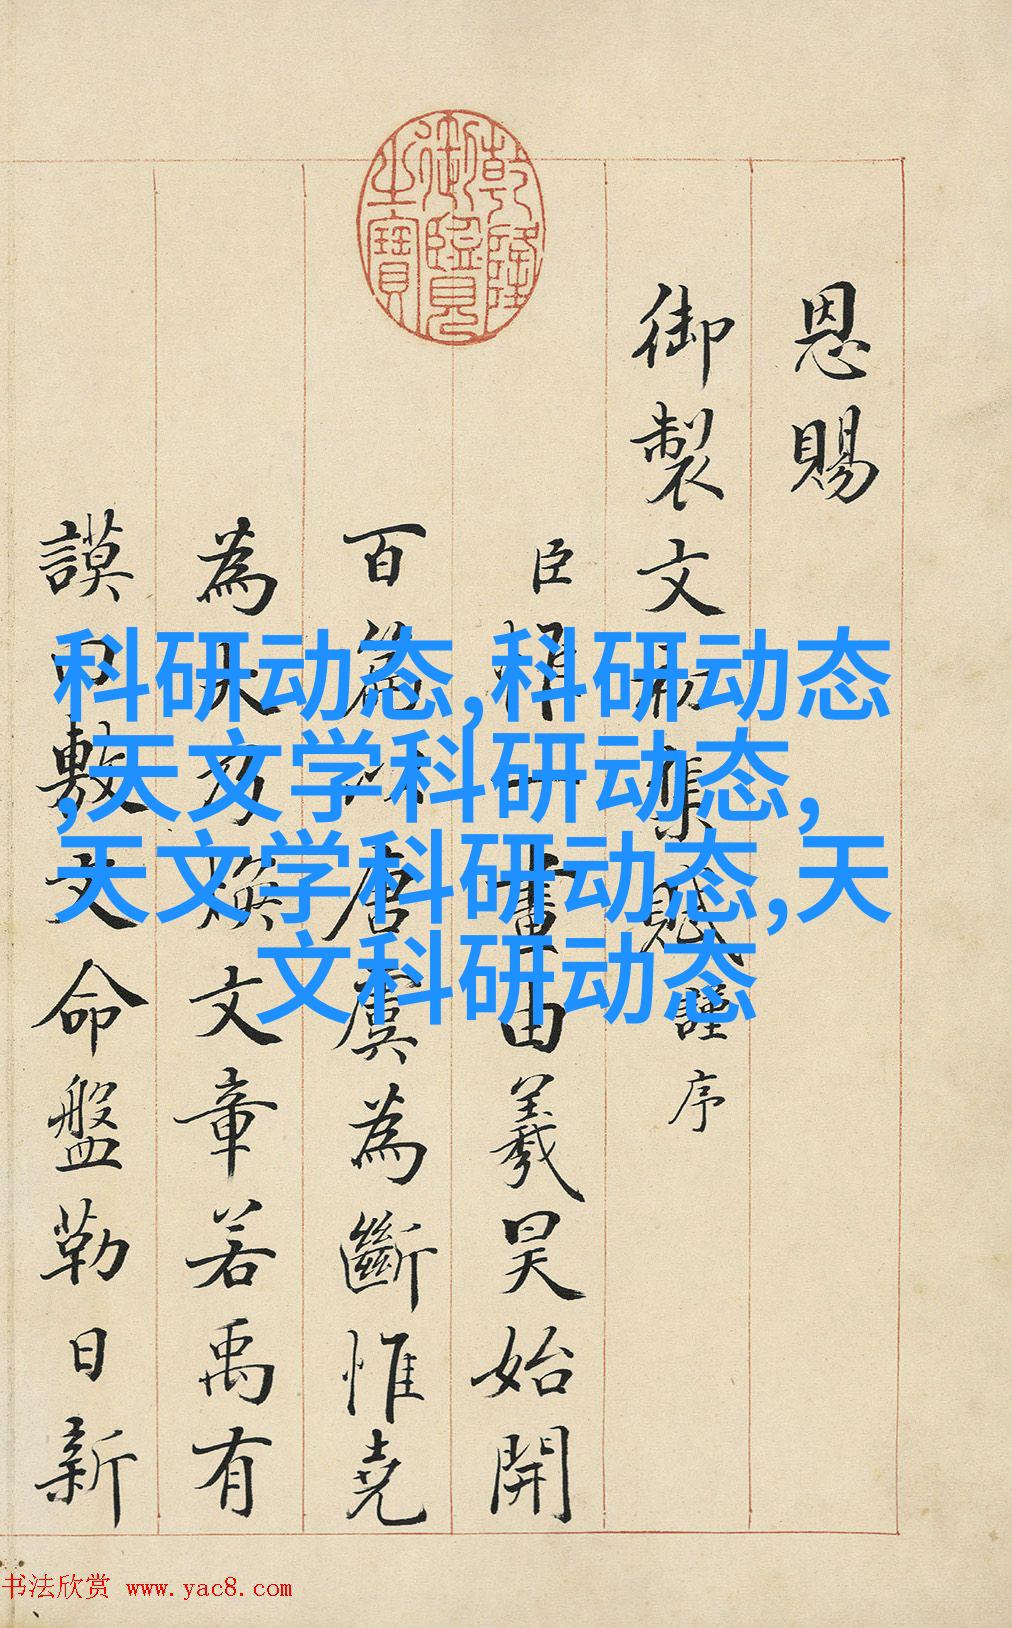 乾隆
御覽
之寶
恩賜
御製文初集賦謹序
臣惟一畫由羲昊始開
百篇以唐虞為斷惟堯
為大乃煥文章若禹有
謨曰敷文命盤勒日新
科研动态,科研动态
,天文学科研动态,
天文学科研动态,天
文科研动态
书法欣赏 www.yac8.com